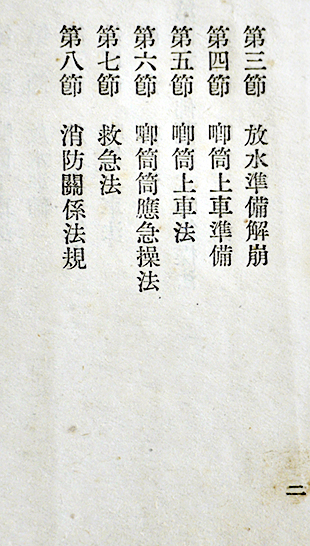 第三節 放水準備解崩
第四節 喞筒上車準備
第五節 喞筒上車法
第六節 喞筒筒應急操法
第七節 救急法
第八節 消防關係法規
二